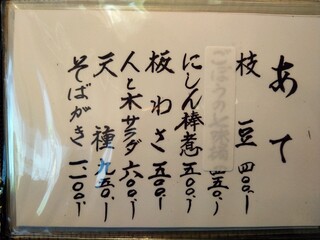 あて
枝豆 四〇〇.-
ごぼうの七味揚 四五〇.-
にしん棒煮 五〇〇.-
板わさ 五〇〇.-
人と木サラダ 六〇〇.-
天種 九五〇.-
そばがき 一一〇〇.-